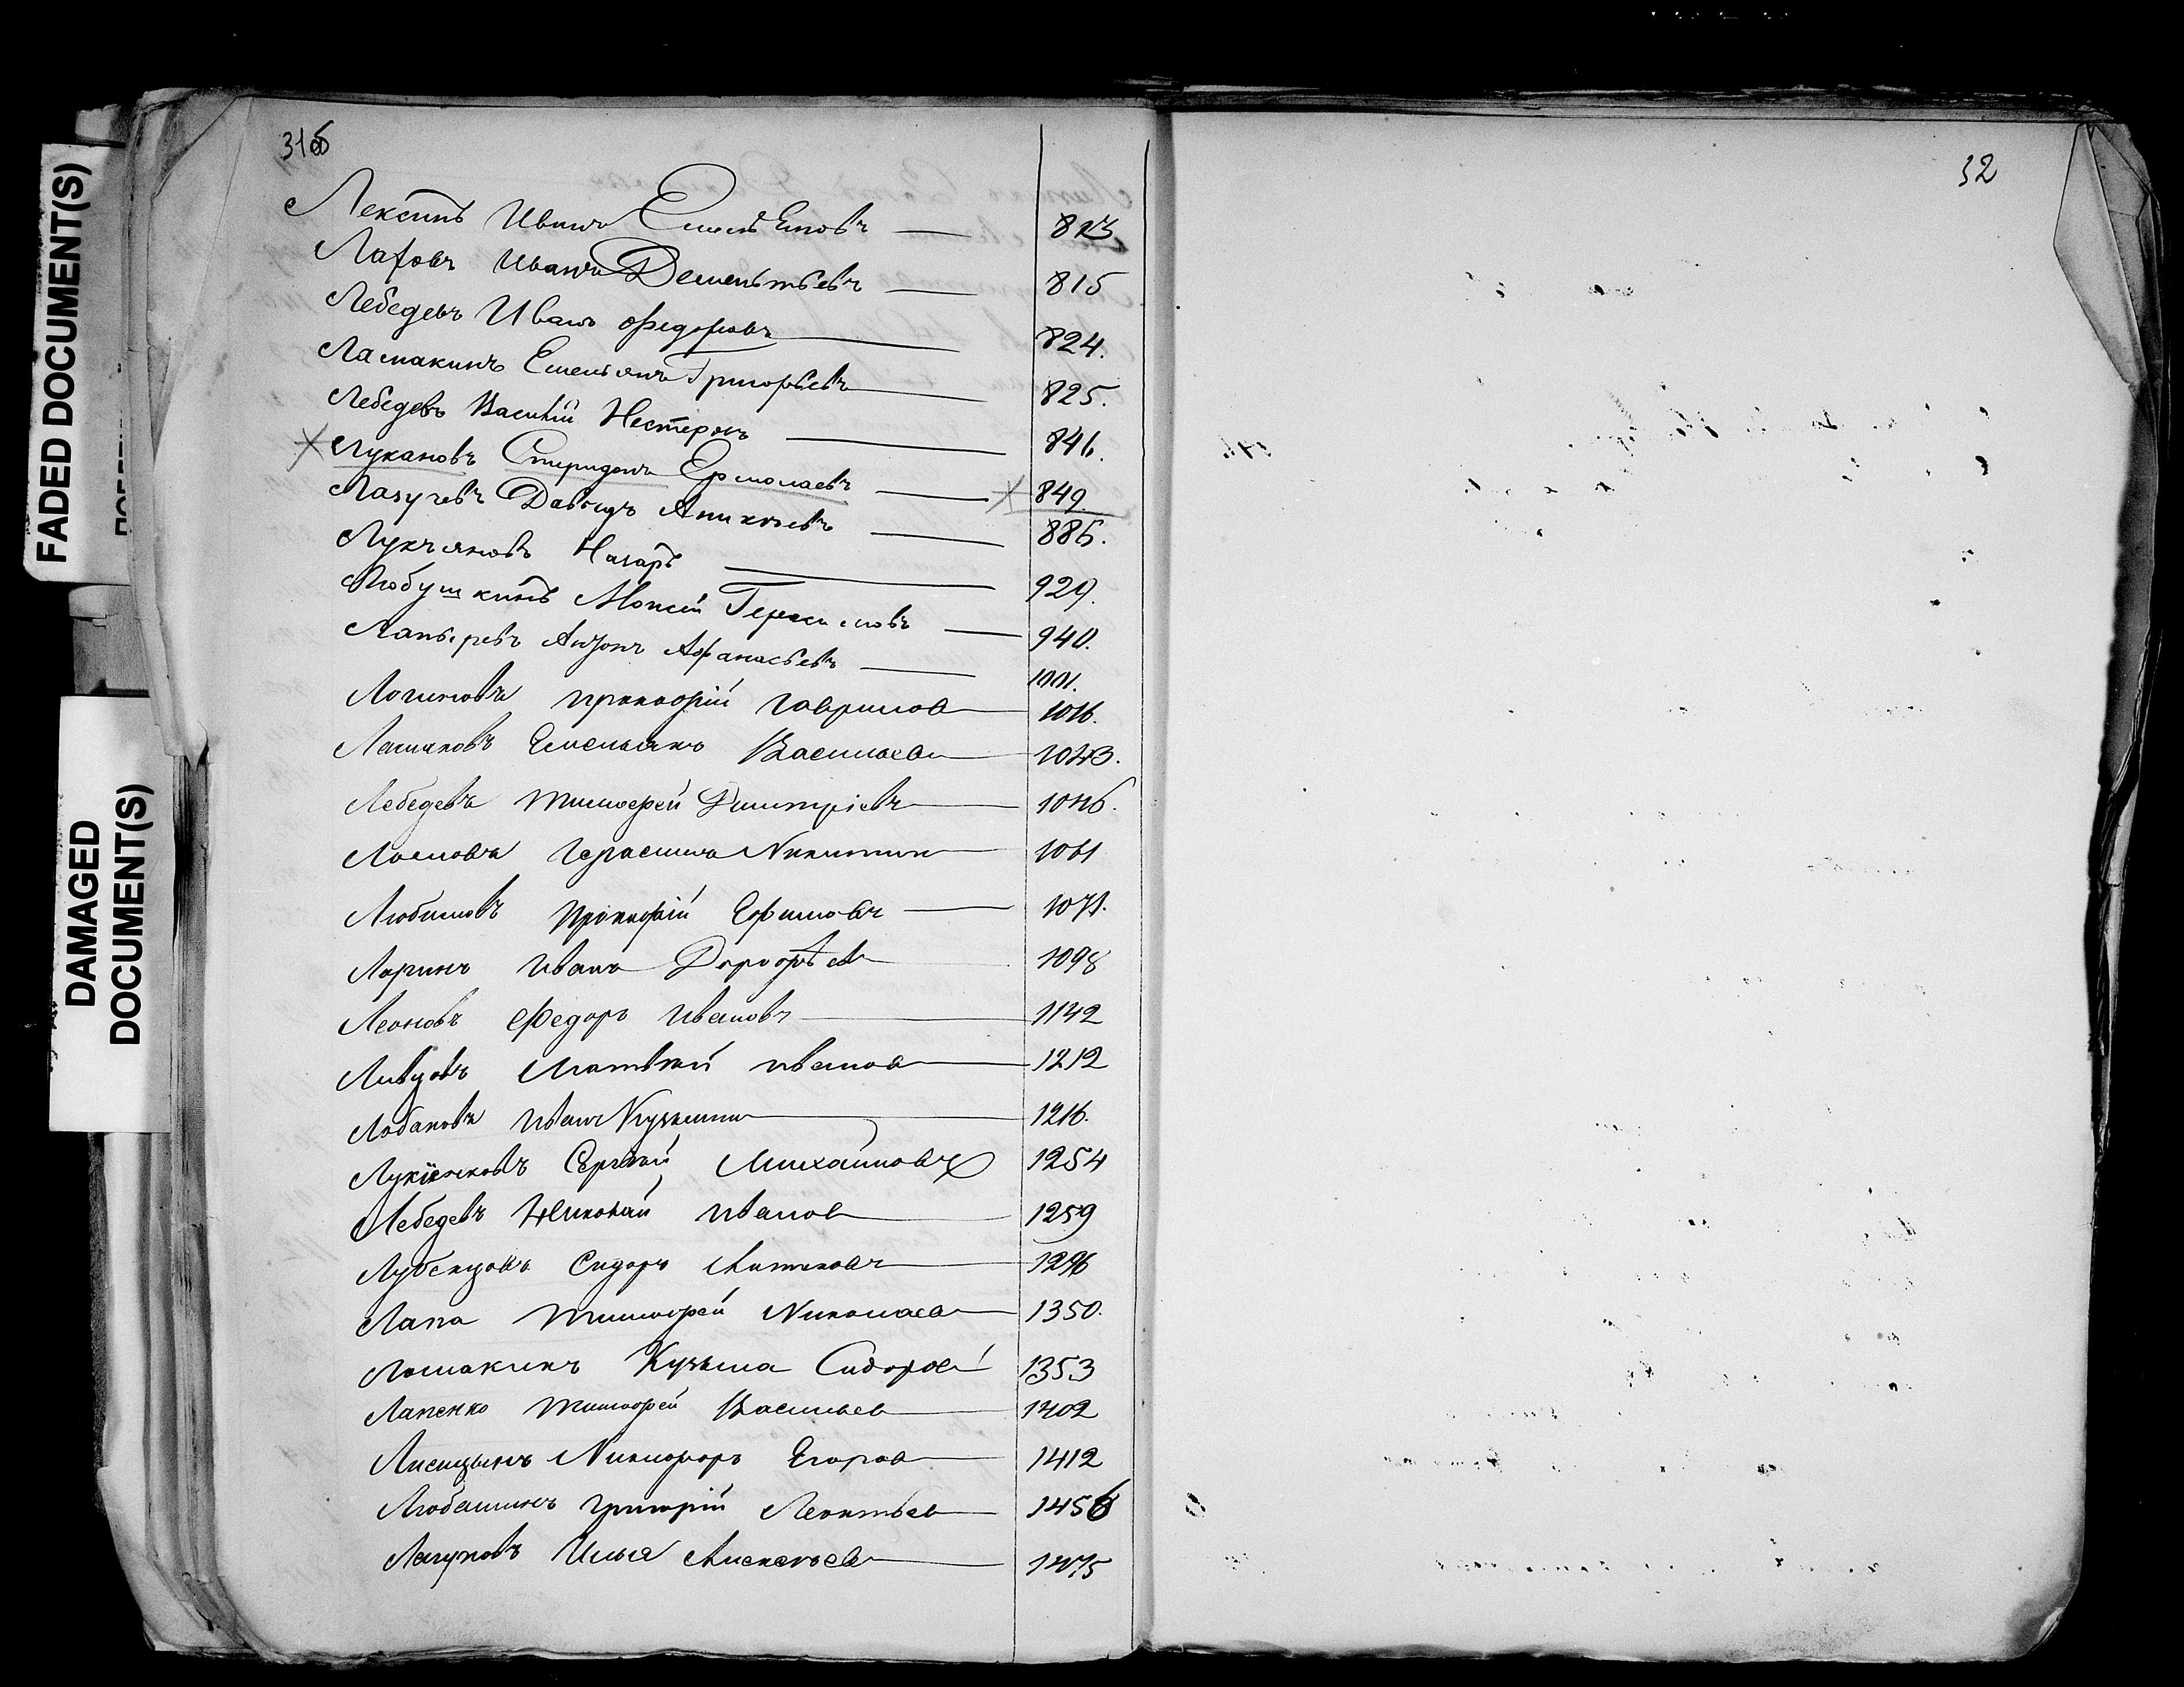 31об
32
FADED DOCUMENT(S)
DAMAGED
DOCUMENT(S)
Лексинъ Иванъ Емельяновъ 823
Лафовъ Иванъ Дементьевъ 815
Лебедевъ Иванъ Федоровъ 824.
Ламакинъ Емельянъ Григорьевъ 825.
Лебедевъ Василій Нестеровъ 846.
Лукановъ Спиридонъ Ермолаевъ 849.
Лазутевъ Давыдъ Аникѣевъ 886.
Лукъяновъ Назаръ 929.
Любушкинъ Мокей Герасимовъ 940.
Лапыревъ Антонъ Афанасьевъ 1001.
Логиновъ Прокофій Гаврилов 1016.
Лашковъ Емельянъ Васильев 1043.
Лебедевъ Тимофей Дмитріевъ 1046.
Лосиовъ Герасимъ Никитин 1061
Любимовъ Прокофій Ефимовъ 1071.
Ларинъ Иванъ Дорофѣев 1098
Леоновъ Федоръ Ивановъ 1142
Ливцовъ Матвѣй Иванов 1212
Лобановъ Иванъ Кузьмин 1216.
Лукіенковъ Сергѣй Михайловъ 1254
Лебедевъ Николай Иванов 1259
Лубенцовъ Сидоръ 1296
Лапа Тимофей Николаев 1350.
Ломакинъ Кузьма Сидоров 1353
Лапенко Тимофей Васильев 1402
Лисицынъ Никифоръ Егоров 1412
Любашинъ Григорій Леонтьев 1456
Лагуновъ Илья Алексѣев 1475